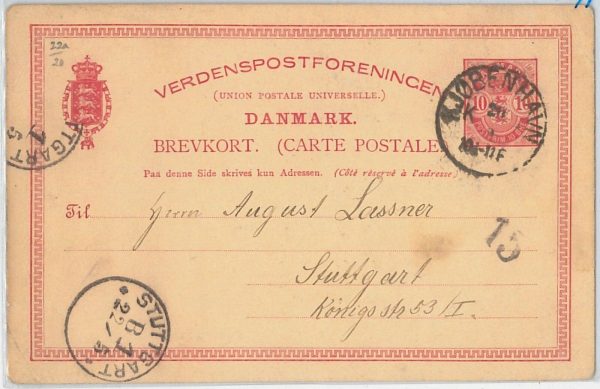 22a
20
VERDENSPOSTFORENINGEN
(UNION POSTALE UNIVERSELLE.)
DANMARK.
BREVKORT. (CARTE POSTALE
Paa denne Side skrives kun Adressen. (Côté réservé à l'adresse)
10 10
KJØBENHAVN
K
TTGART
1 5
Til Herrn August Lassner
Stuttgart
Königsstr 53/I.
15
STUTTGART
B1
22/5